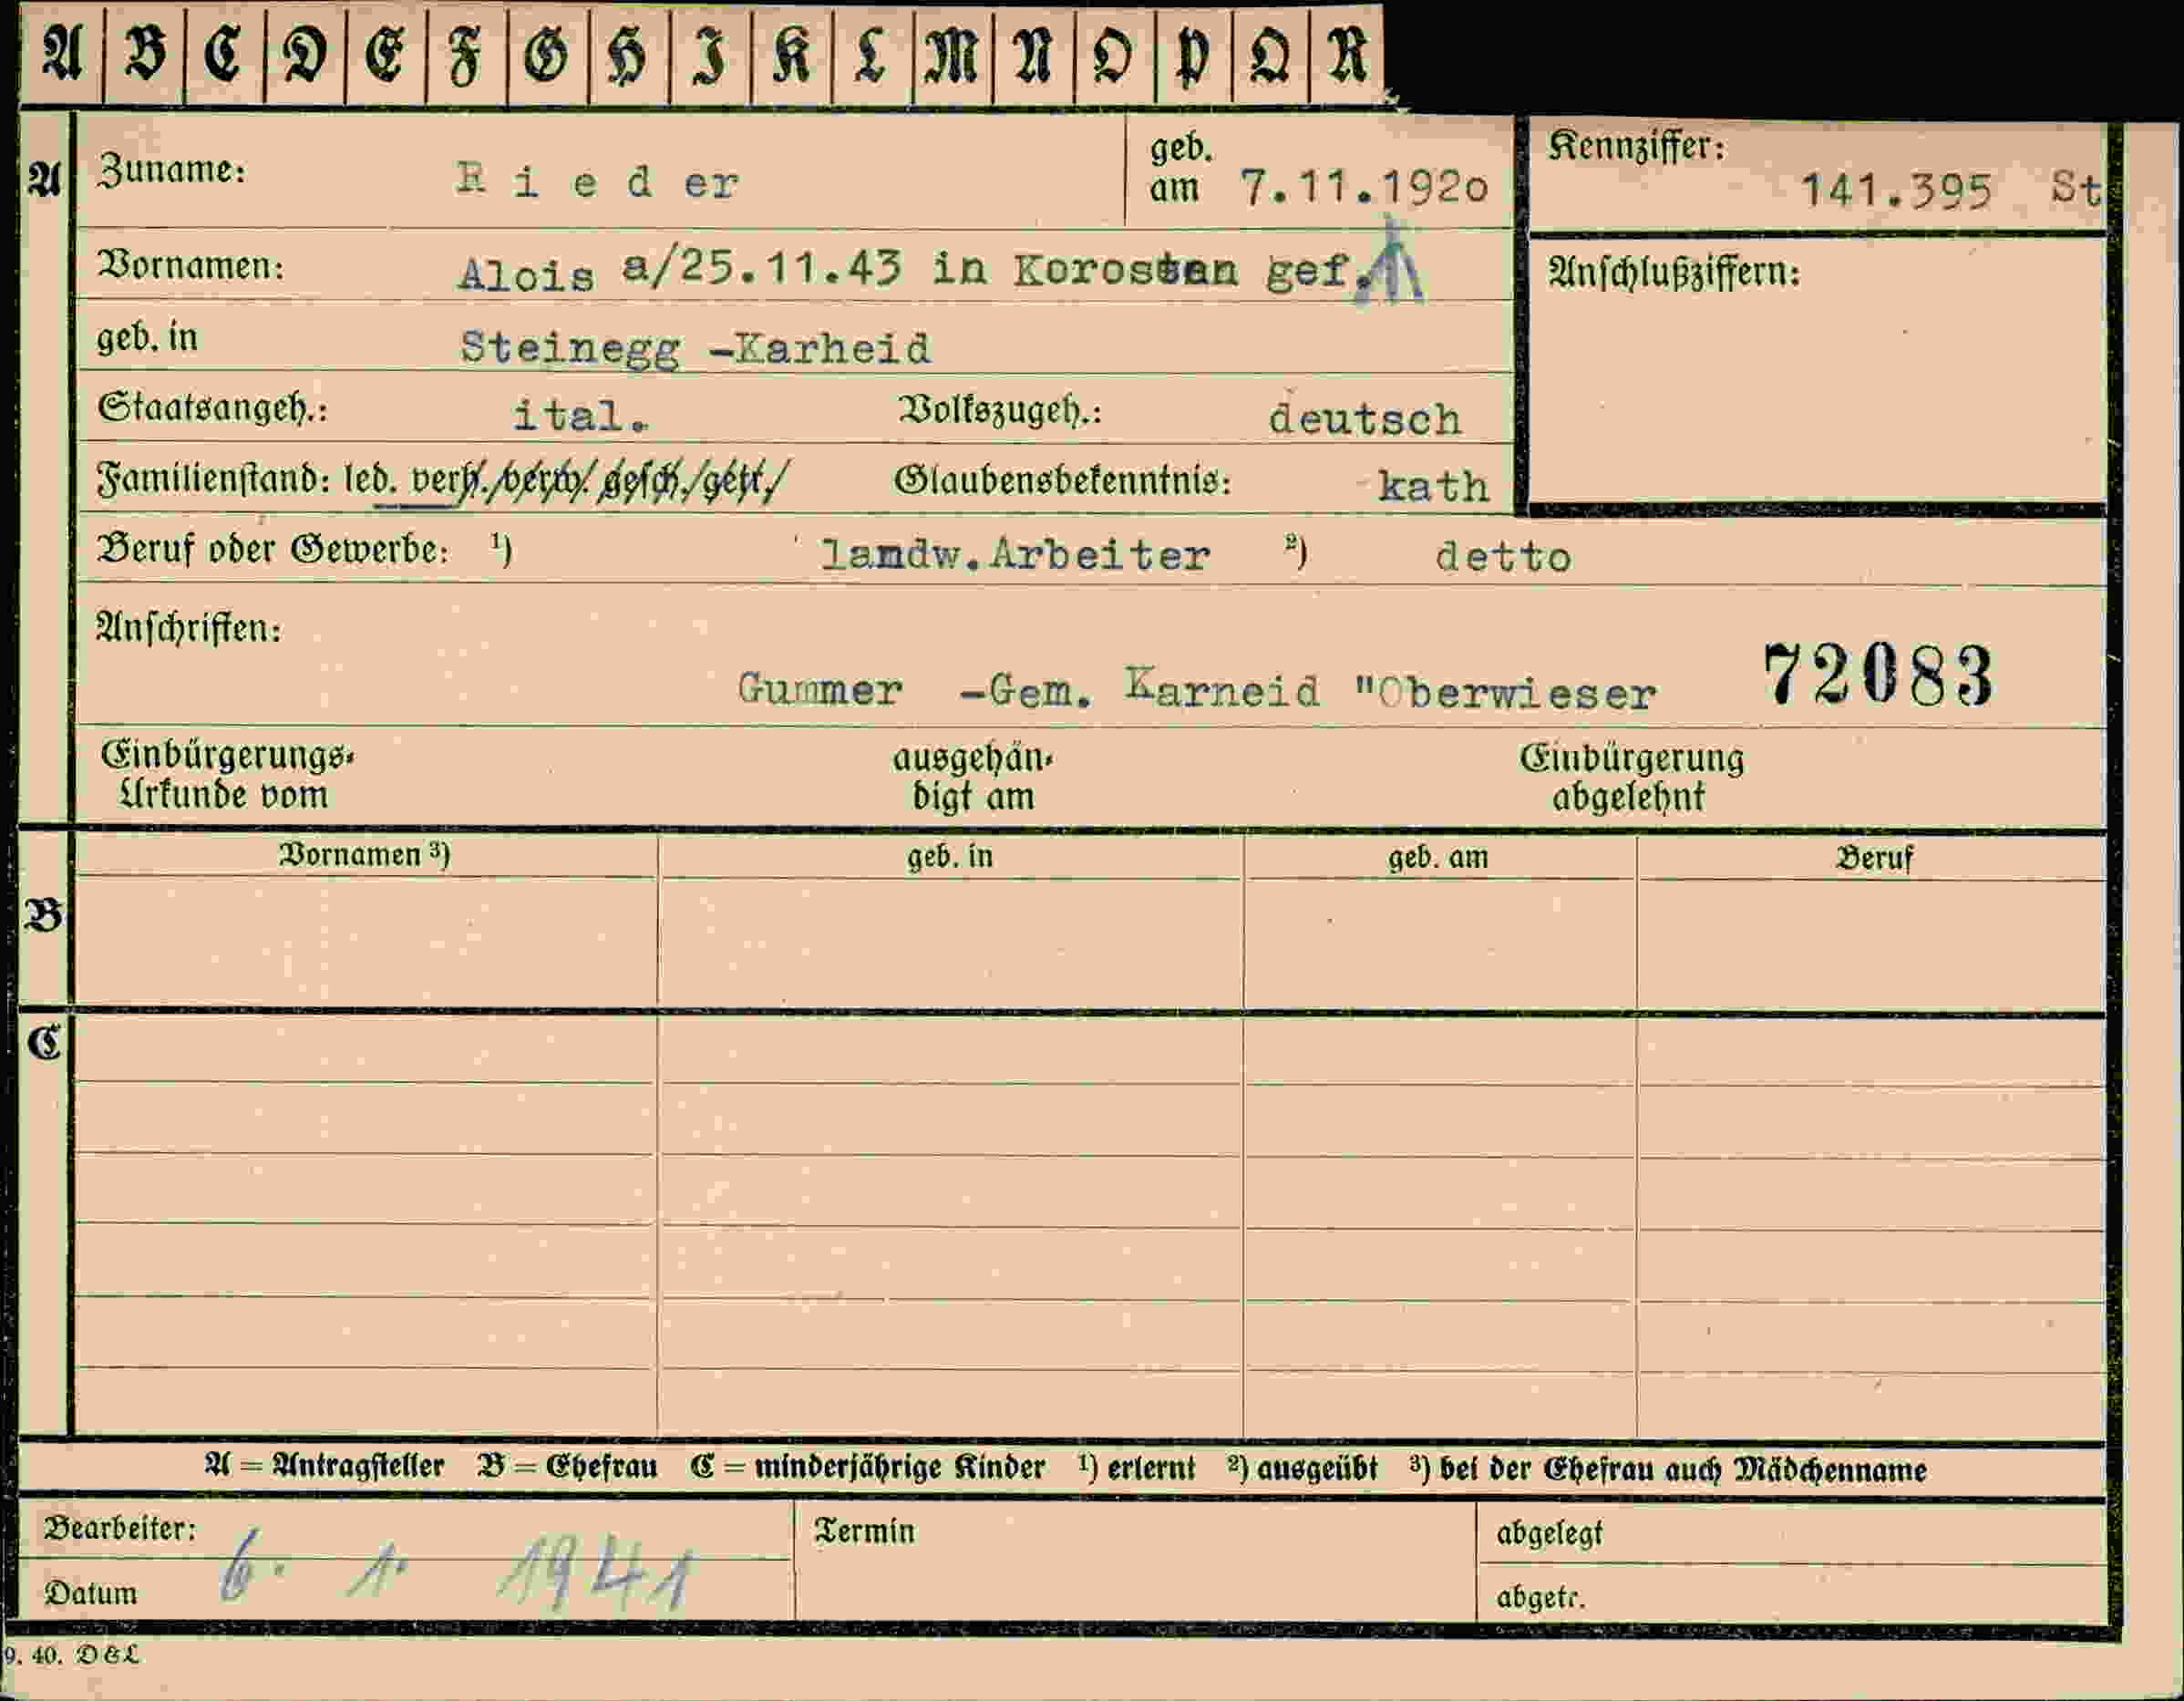 A B C D E F G H I K L M N O P Q R
A Zuname: Rieder geb. am 7.11.192o Kennziffer: 141.395 St
Vornamen: Alois a/25.11.43 in Korostan gef. Anschlußziffern:
geb. in Steinegg -Karheid
Staatsangeh.: ital. Volkszugeh.: deutsch
Familienstand: led. verh./verw./gesch./getr./ Glaubensbekenntnis: kath
Beruf oder Gewerbe: ¹) landw.Arbeiter ²) detto
Anschriften:
Gummer -Gem. Karneid "Oberwieser 72083
Einbürgerungs- ausgehän- Einbürgerung
Urkunde vom digt am abgelehnt
Vornamen ³) geb. in geb. am Beruf
B
C
A = Antragsteller B = Ehefrau C = minderjährige Kinder ¹) erlernt ²) ausgeübt ³) bei der Ehefrau auch Mädchenname
Bearbeiter: Termin abgelegt
Datum 6. 1. 1941 abgetr.
9. 40. D&L